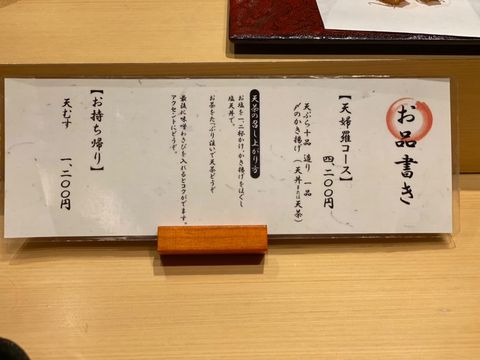 お品書き
【天婦羅コース】
四、二〇〇円
天ぷら十品 造り 一品
〆のかき揚げ(天丼または天茶)
天茶の召し上がり方
お塩を一、二杯かけ、かき揚げをほぐし
塩天丼で。
お茶をたっぷり注いで天茶どうぞ
最後に味噌わさびを入れるとコクがでます。
アクセントにどうぞ。
【お持ち帰り】
天むす 一、二〇〇円